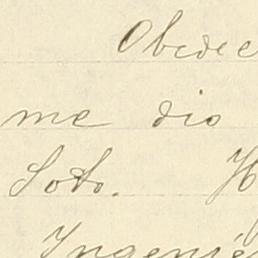 Obedec
me dio
Soto. H
Ingenié